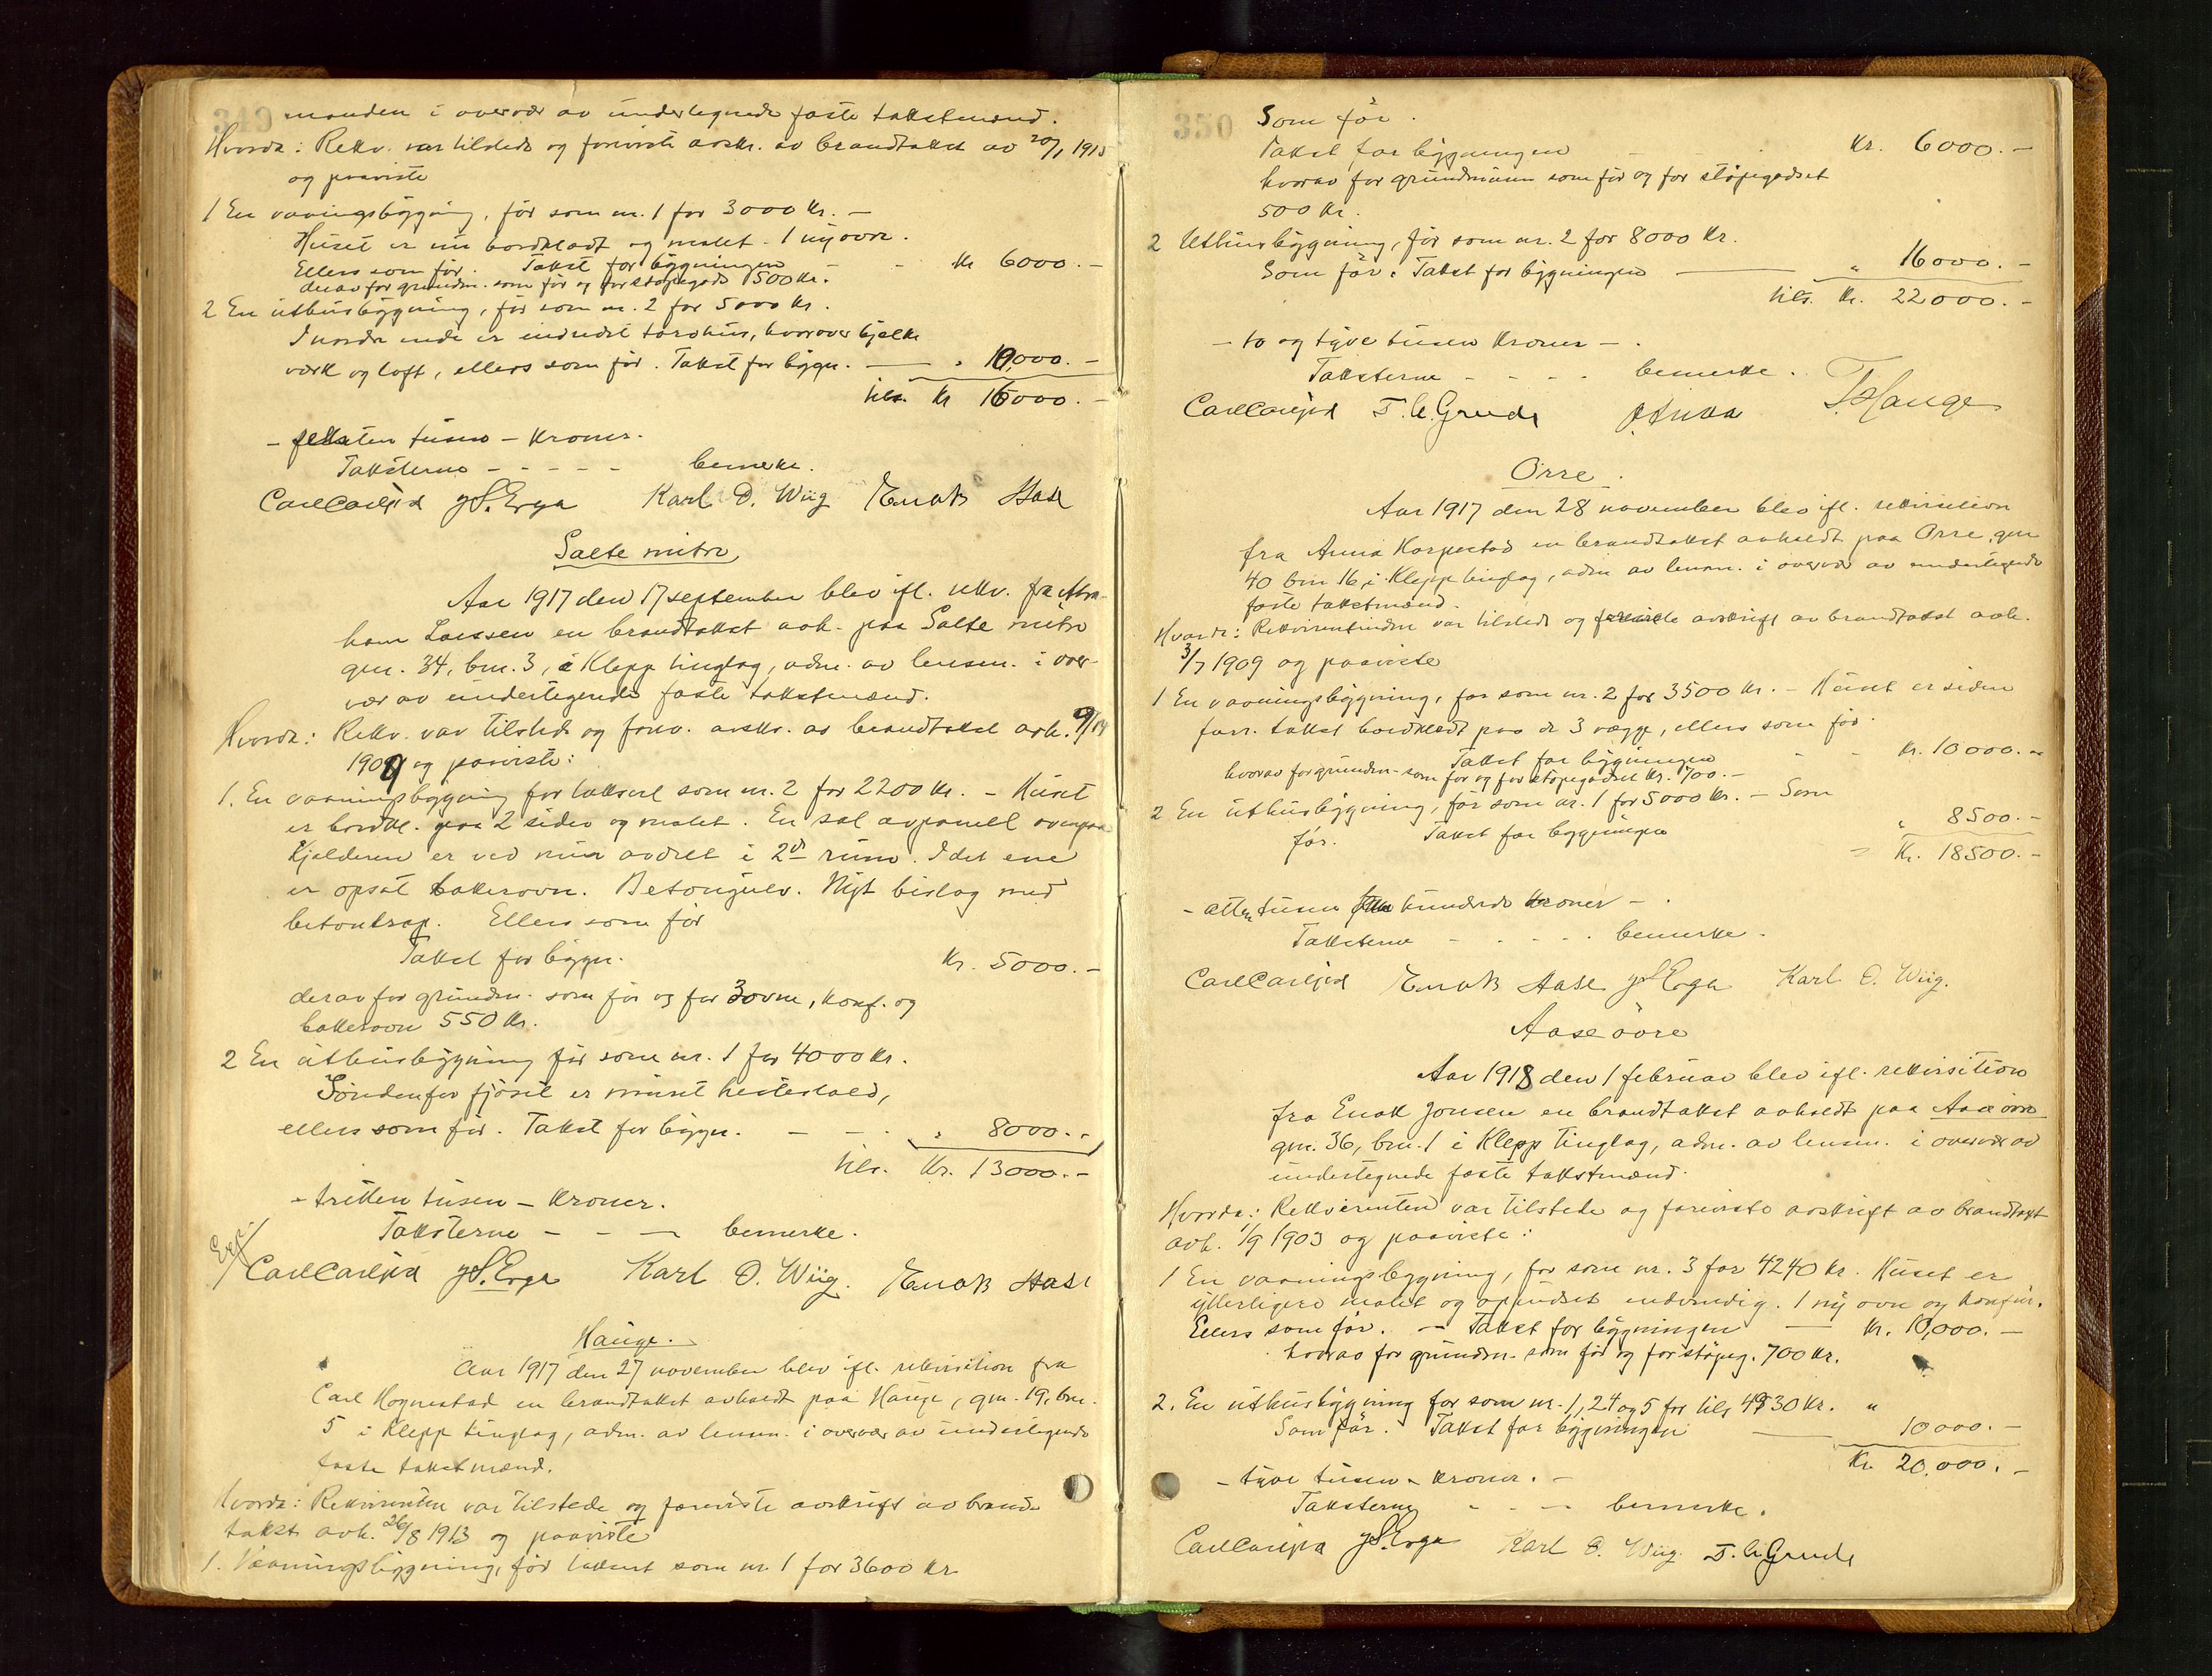 349
manden i overvær av undertegnede faste takstmænd.
Hvorda: Rekv. var tilstede og foreviste avskr. av brandtakst av 20/1 1915
og paaviste
1 En vaaningsbygning, før som nr. 1 for 3000 Kr. –
Huset er nu bordklædt og malet. 1 ny ovn.
Ellers som før. Takst for bygningen - - Kr 6000. –
derav for grundm. som før og for støpegods 500 Kr.
2 En uthusbygning, før som nr. 2 for 5000 Kr.
I nordre ende er indredet torvhus, hvorover bjelke
værk og loft, ellers som før. Takst for bygn. — " 10,000. –
tils. Kr 16000. –
– seksten tusen – Kroner.
Taksterne - - - - - bemerke.
Carl Carlsen J. S. Erga Karl O. Wiig Enok Aase
Salte mitre
Aar 1917 den 17 september blev ifl. rekv. fra Abra-
ham Larssen en brandtakst avh. paa Salte mitre
gnr. 34, bnr. 3, i Klepp tinglag, adm. av lensm. i over-
vær av undertegnede faste takstmænd.
Hvorda: Rekv. var tilstede og forev. avskr. av brandtakst avh. 9/14
1909 og paaviste:
1. En vaaningsbygning før taksert som nr. 2 for 2200 Kr. – Huset
er bordkl. paa 2 sider og malet. En sal avpanelt ovenpaa
Kjelderen er ved mur avdelt i 2de rum. I det ene
er opsat bakerovn. Betongulv. Nyt bislag med
betontrap. Ellers som før
Takst for bygn. Kr. 5000. –
derav for grundm. som før og for 3 ovne, konf. og
bakerovn 550 Kr.
2 En uthusbygning før som nr. 1 for 4000 Kr.
Søndenfor fjøset er muret hestestald,
ellers som før. Takst for bygn. - - " 8000. –
tils. Kr. 13000. –
– tretten tusen – Kroner.
Taksterne - - - bemerke.
Carl Carlsen J. S. Erga Karl O. Wiig. Enok Aase
Hauge.
Aar 1917 den 27 november blev ifl. rekvisition fra
Carl Hognestad en brandtakst avholdt paa Hauge, gnr. 19, bnr.
5 i Klepp tinglag, adm. av lensm. i overvær av undertegnede
faste takstmænd.
Hvorda: Rekvirenten var tilstede og foreviste avskrift av brand-
takst avh. 26/8 1913 og paaviste
1. Vaaningsbygning, før taksert som nr 1 for 3600 Kr
350
Som før.
Takst for bygningen Kr. 6000. –
hvorav for grundmuren som før og for støpegodset
500 Kr.
2 Uthusbygning, før som nr. 2 for 8000 Kr.
Som før. Takst for bygningen — " 16000. –
tils. Kr. 22000. –
– to og tyve tusen Kroner –.
Taksterne - - - - bemerke.
Carl Carlsen T. C. Grude T. Hauge
Orre.
Aar 1917 den 28 november blev ifl. rekvisition
fra Anna Horpestad en brandtakst avholdt paa Orre, gnr
40 bnr 16, i Klepp tinglag, adm av lensm. i overvær av undertegnede
faste takstmænd.
Hvorda: Rekvirentinden var tilstede og foreviste avskrift av brandtakst avh.
3/7 1909 og paaviste
1 En vaaningsbygning, før som nr. 2 for 3500 Kr. – Huset er siden
forr. takst bordklædt paa de 3 vægge, ellers som før.
Takst for bygningen - - Kr. 10000. –
hvorav for grundm. som før og for støpegodset Kr. 700. –
2 En uthusbygning, før som nr. 1 for 5000 Kr. – Som
før. Takst for bygningen " 8500. –
Kr. 18500. –
– atten tusen fem hundrede Kroner –.
Taksterne - - - - bemerke.
Carl Carlsen Enok Aase J. S. Erga Karl O. Wiig.
Aase övre
Aar 1918 den 1 februar blev ifl. rekvisition
fra Enok Jonsen en brandtakst avholdt paa Aase övre
gnr. 36, bnr. 1 i Klepp tinglag, adm. av lensm. i overvær av
undertegnede faste takstmænd.
Hvorda: Rekvirenten var tilstede og foreviste avskrift av brandtakst
avh. 1/9 1903 og paaviste:
1 En vaaningsbygning, før som nr. 3 for 4240 Kr. Huset er
ytterligere malet og opudset indvendig. 1 ny ovn og konfur.
Ellers som før. – Takst for bygningen — Kr. 10,000. –
hvorav for grundm. som før og for støpeg. 700 Kr.
2. En uthusbygning før som nr. 1, 2 4 og 5 for tils 4930 Kr. "
Som før. Takst for bygningen — 10000. –
Kr. 20,000. –
– tyve tusen – Kroner. –
Taksterne - - - bemerke.
Carl Carlsen J. S. Erga Karl O. Wiig. T. C. Grude